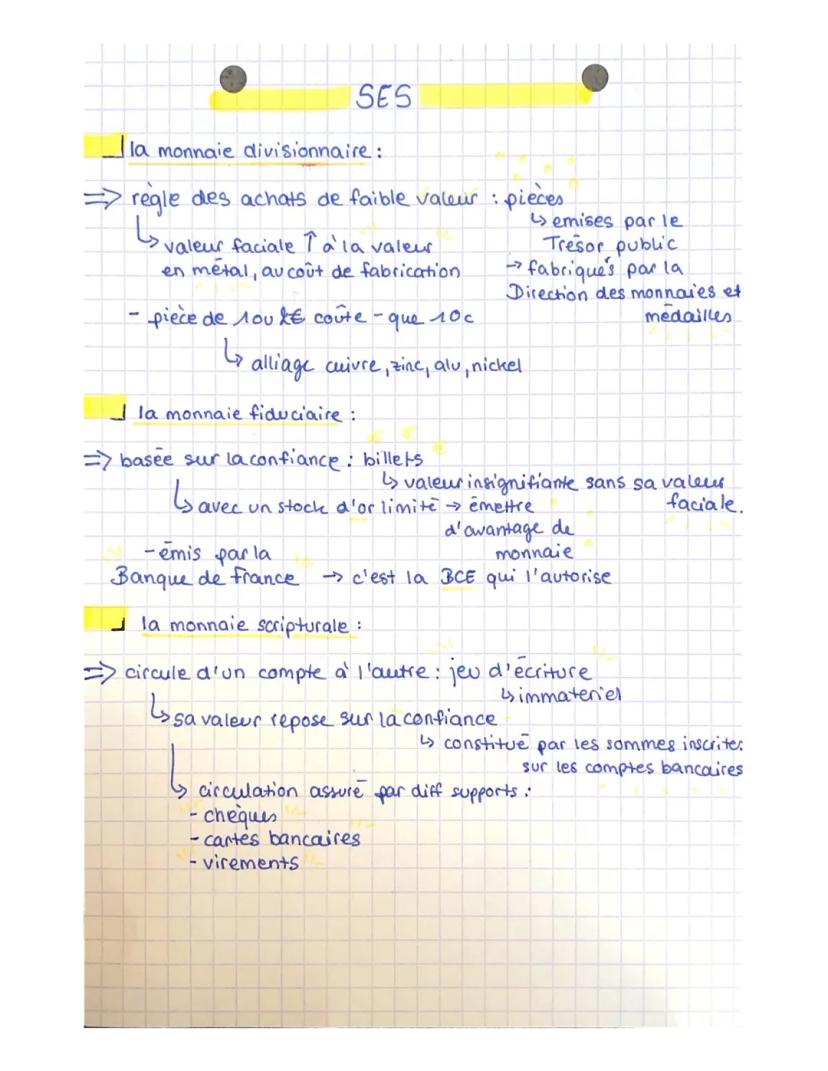 SES
la monnaie divisionnaire :
⇒ règle des achats de faible valeur : pièces
↳ emises par le
Trésor public
→ fabriqués par la
Direction des monnaies et
médailles
↳ valeur faciale ↑ à la valeur
en métal, au coût de fabrication
- pièce de 1 ou 2€ coûte - que 10c
↳ alliage cuivre, zinc, alu, nickel
la monnaie fiduciaire :
⇒ basée sur la confiance : billets
↳ valeur insignifiante sans sa valeur
faciale.
↳ avec un stock d'or limité → émettre
d'avantage de
monnaie
- émis par la
Banque de France → c'est la BCE qui l'autorise
la monnaie scripturale :
⇒ circule d'un compte à l'autre : jeu d'écriture
↳ immateriel
↳ sa valeur repose sur la confiance
↳ constitué par les sommes inscrites
sur les comptes bancaires
↳ circulation assuré par diff supports :
- chèques
- cartes bancaires
- virements